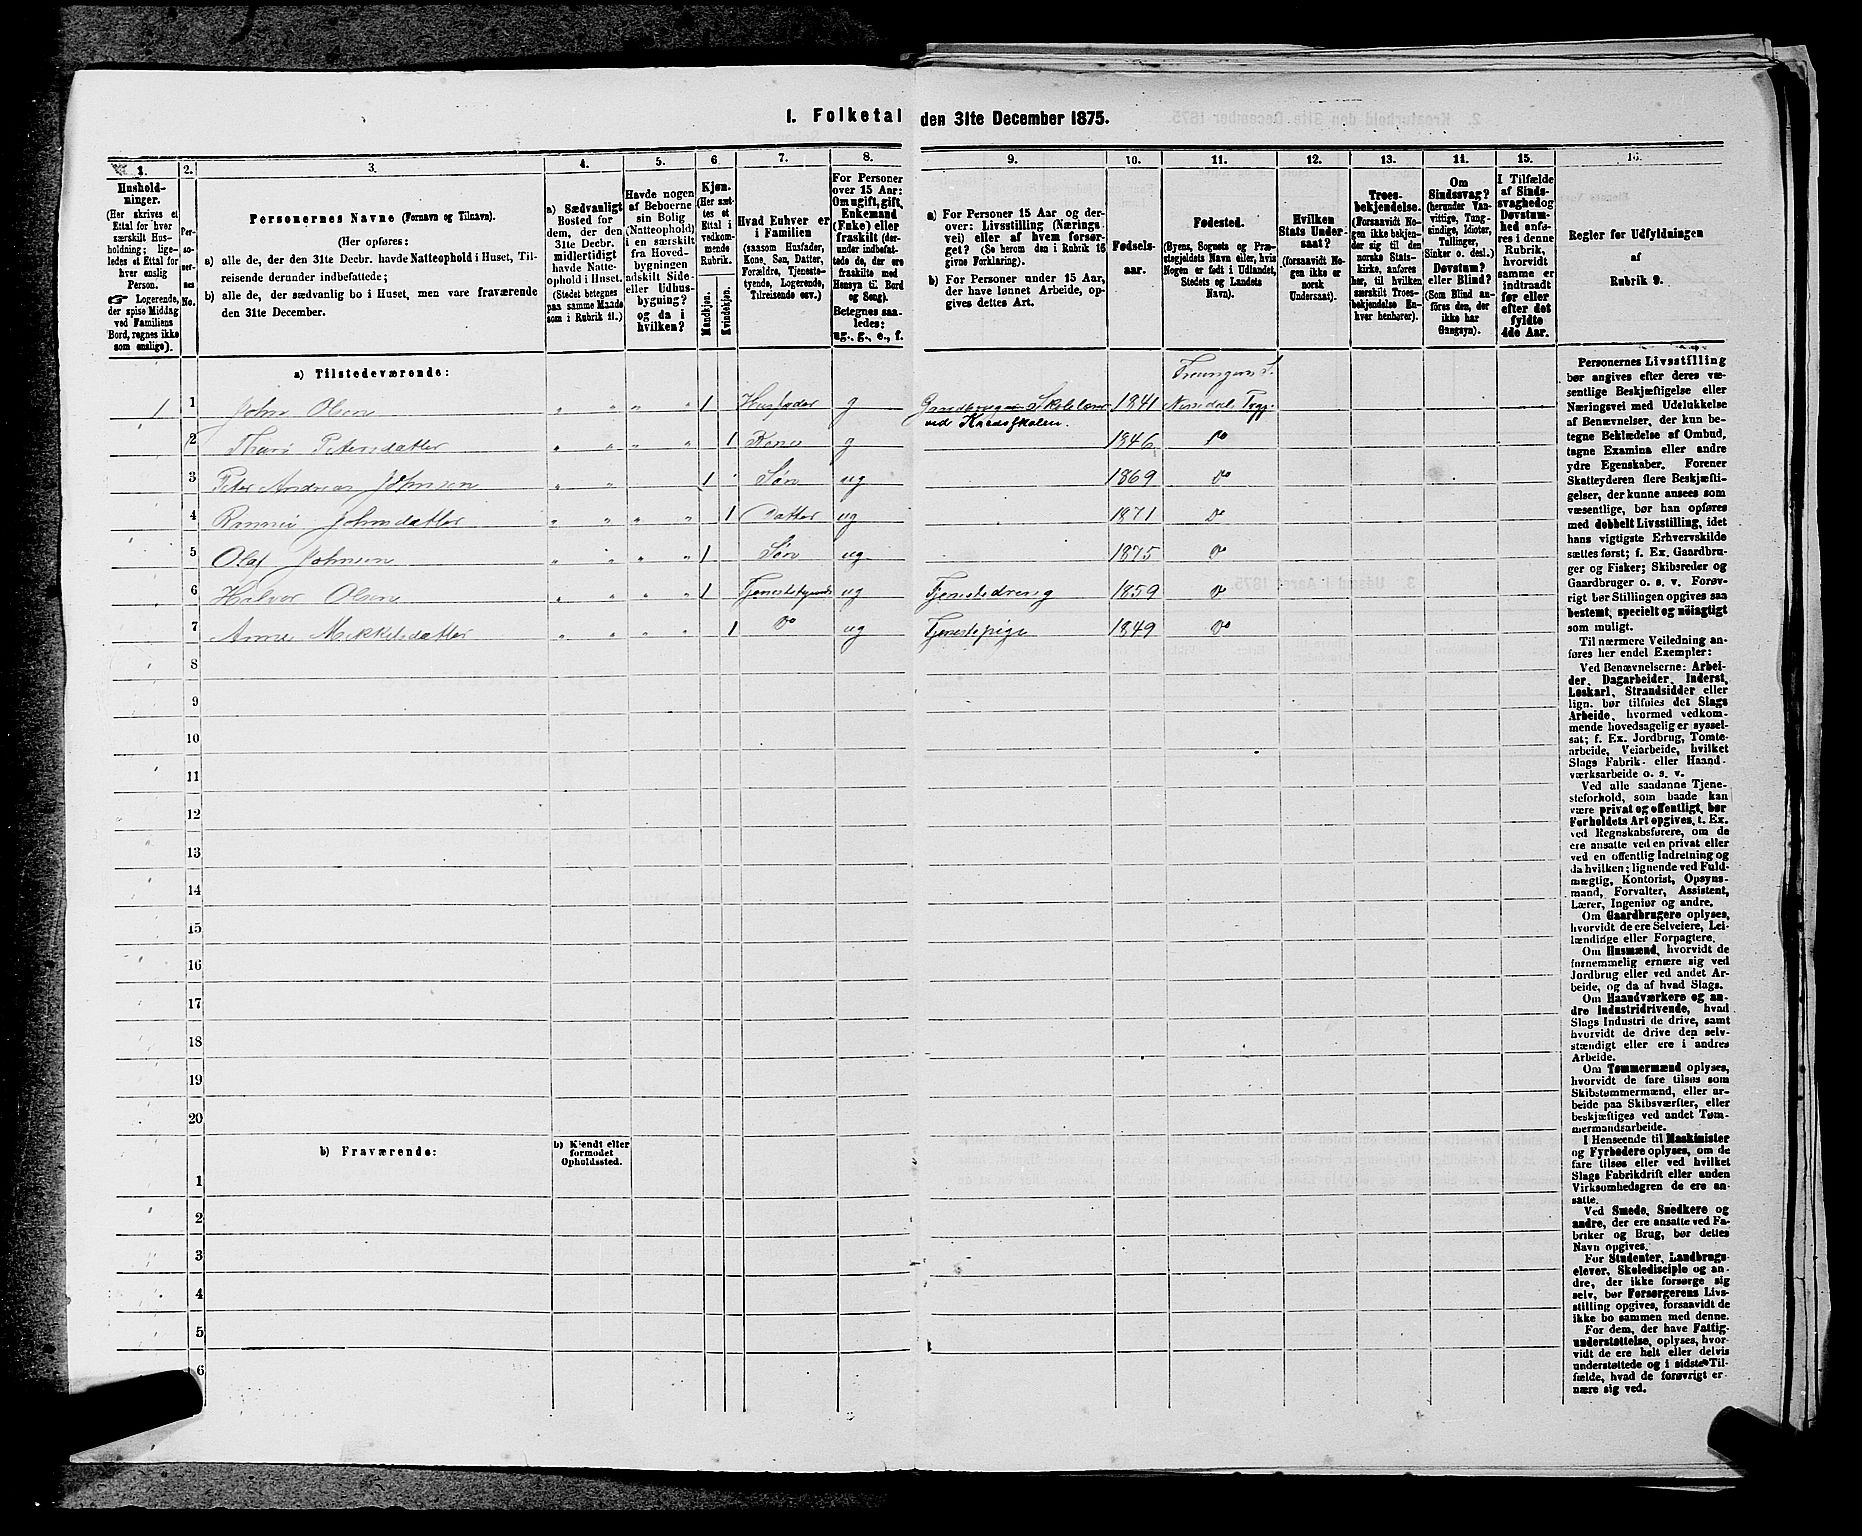 I. Folketal den 31te December 1875.
1. 2. 3. 4. 5. 6. 7. 8. 9. 10. 11. 12. 13. 14. 15. 16.
Hushold-
ninger.
(Her skrives et
Ettal for hver
særskilt Hus-
holdning; lige-
ledes et Ettal for
hver enslig
Person.
☞ Logerende,
der spise Middag
ved Familiens
Bord, regnes ikke
som enslige).
Per-
so-
ner-
nes
No.
Personernes Navne (Fornavn og Tilnavn).
(Her opføres:
a) alle de, der den 31te Decbr. havde Natteophold i Huset, Til-
reisende derunder indbefattede;
b) alle de, der sædvanlig bo i Huset, men vare fraværende
den 31te December.
a) Sædvanligt
Bosted for
dem, der den
31te Decbr.
midlertidigt
havde Natte-
ophold i Huset.
(Stedet betegnes
paa samme Maade
som i Rubrik 11.)
Havde nogen
af Beboerne
sin Bolig
(Natteophold)
i en særskilt
fra Hoved-
bygningen
adskilt Side-
eller Udhus-
bygning?
og da i
hvilken?
Kjøn.
(Her sæt-
tes et
Ettal i
vedkom-
mende
Rubrik.
Mandkjøn.
Kvindekjøn.
Hvad Enhver er
i Familien
(saasom Husfader,
Kone, Søn, Datter,
Forældre, Tjeneste-
tyende, Logerende,
Tilreisende osv.)
For Personer
over 15 Aar:
Om ugift, gift,
Enkemand
(Enke) eller
fraskilt (der-
under indbefat-
tede de, der ere
fraskilte med
Hensyn til Bord
og Seng).
Betegnes saa-
ledes:
ug., g., e., f.
a) For Personer 15 Aar og der-
over: Livsstilling (Nærings-
vei) eller af hvem forsør-
get? (Se herom den i Rubrik 16
givne Forklaring).
b) For Personer under 15 Aar,
der have lønnet Arbeide, op-
gives dettes Art.
Fødsels-
aar.
Fødested.
(Byens, Sognets og Præ-
stegjeldets Navn eller, hvis
Nogen er født i Udlandet,
Stedets og Landets
Navn).
Hvilken
Stats Under-
saat?
(forsaavidt No-
gen ikke er
norsk
Undersaat).
Troes-
bekjendelse.
(Forsaavidt No-
gen ikke bekjen-
der sig til den
norske Stats-
kirke, anføres
her, til hvilken
særskilt Troes-
bekjendelse En-
hver henhører).
Om
Sindssvag?
(herunder Van-
vittige, Tung-
sindige, Idioter,
Tullinger,
Sinker o. desl.)
Døvstum?
eller Blind?
(Som Blind an-
føres den, der
ikke har
Gangsyn).
I Tilfælde
af Sinds-
svaghed og
Døvstum-
hed anfø-
res i denne
Rubrik,
hvorvidt
samme er
indtraadt
før eller
efter det
fyldte
4de Aar.
Regler for Udfyldningen
af
Rubrik 9.
a) Tilstedeværende:
Treungens S.
1 1 John Olsen " " " " 1 Husfader g Gaardbruger Skolelærer 1841 Nissedal Prgj.
ved Kredsskolen.
2 Petersdatter " " " " 1 Kone g 1846 Do
3 Peter Andreas Johnsen " " 1 Søn ug 1869 Do
4 Johnsdatter " " " " 1 Datter ug 1871 Do
5 Olaf Johnsen " " 1 Søn ug 1875 Do
6 Halvor Olsen " " " " 1 Tjenestetyende ug Tjenestedreng 1859 Do
7 Anne Mikkelsdatter " " " " 1 Do ug Tjenestepige 1849 Do
8
9
10
11
12
13
14
15
16
17
18
19
20
b) Fraværende:
b) Kjendt eller
formodet
Opholdssted.
1
2
3
4
5
6
Personernes Livsstilling
bør angives efter deres væ-
sentlige Beskjæftigelse eller
Næringsvei med Udelukkelse
af Benævnelser, der kun be-
tegne Beklædelse af Ombud,
tagne Examina eller andre
ydre Egenskaber. Forener
Skatteyderen flere Beskjæfti-
gelser, der kunne ansees som
væsentlige, bør han opføres
med dobbelt Livsstilling, idet
hans vigtigste Erhvervskilde
sættes først; f. Ex. Gaardbru-
ger og Fisker; Skibsreder og
Gaardbruger o. s. v. Forøv-
rigt bør Stillingen opgives saa
bestemt, specielt og nøiagtigt
som muligt.
Til nærmere Veiledning an-
føres her endel Exempler:
Ved Benævnelserne: Arbei-
der, Dagarbeider, Inderst,
Løskarl, Strandsidder eller
lign. bør tilføies det Slags
Arbeide, hvormed vedkom-
mende hovedsagelig er syssel-
sat; f. Ex. Jordbrug, Tomte-
arbeide, Veiarbeide, hvilket
Slags Fabrik- eller Haand-
værksarbeide o. s. v.
Ved alle saadanne Tjene-
steforhold, som baade kan
være privat og offentligt, bør
Forholdets Art opgives, t. Ex.
ved Regnskabsførere, om de
ere ansatte ved en privat eller
ved en offentlig Indretning og
da hvilken; lignende ved Fuld-
mægtig, Kontorist, Opsyns-
mand, Forvalter, Assistent,
Lærer, Ingeniør og andre.
Om Gaardbrugere oplyses,
hvorvidt de ere Selveiere, Lei-
lændinge eller Forpagtere.
Om Husmænd, hvorvidt de
fornemmelig ernære sig ved
Jordbrug eller ved andet Ar-
beide, og da af hvad Slags.
Om Haandværkere og an-
dre Industridrivende, hvad
Slags Industri de drive, samt
hvorvidt de drive den selv-
stændigt eller ere i andres
Arbeide.
Om Tømmermænd oplyses,
hvorvidt de fare tilsøs som
Skibstømmermænd, eller ar-
beide paa Skibsværfter, eller
beskjæftiges ved andet Tøm-
mermandsarbeide.
I Henseende til Maskinister
og Fyrbødere oplyses, om de
fare tilsøs eller ved hvilket
Slags Fabrikdrift eller anden
Virksomhedsgren de ere an-
satte.
Ved Smede, Snedkere og
andre, der ere ansatte ved Fa-
briker og Brug, bør dettes
Navn opgives.
For Studenter, Landbrugs-
elever, Skoledisciple og an-
dre, der ikke forsørge sig
selv, bør Forsørgerens Livs-
stilling opgives, forsaavidt de
ikke bo sammen med denne.
For dem, der have Fattig-
understøttelse, oplyses, hvor-
vidt de ere helt eller delvis
understøttede og i sidste Til-
fælde, hvad de forøvrigt er-
nære sig ved.